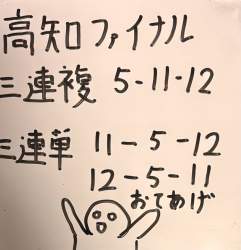 高知ファイナル
三連複 5-11-12
三連単 11-5-12
12-5-11
おてあげ